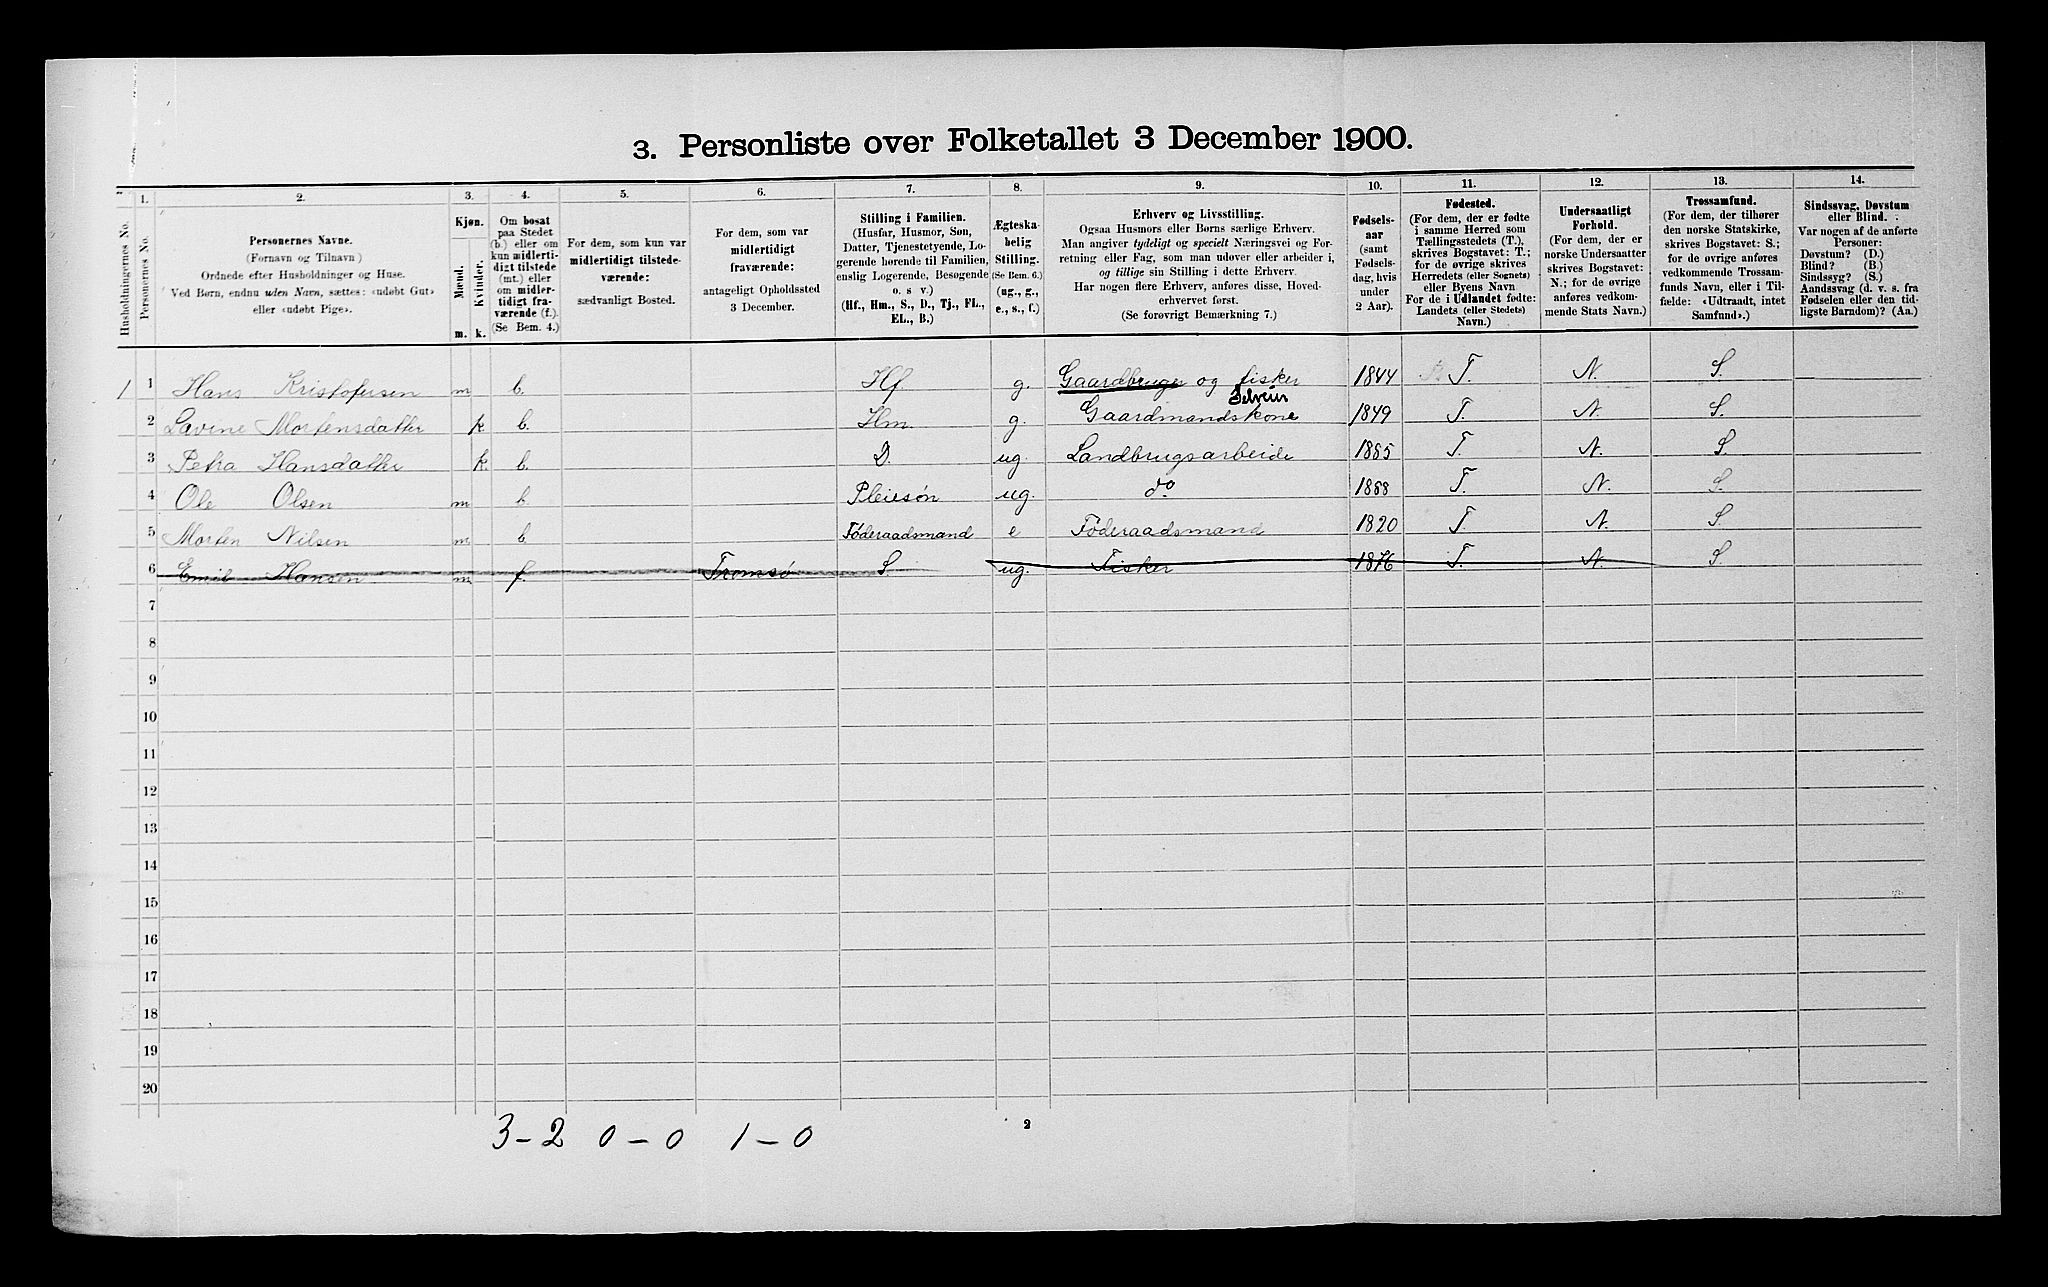 3. Personliste over Folketallet 3 December 1900.
Husholdningernes No.
1.
Personernes No.
2.
Personernes Navne.
(Fornavn og Tilnavn)
Ordnede efter Husholdninger og Huse.
Ved Børn, endnu uden Navn, sættes: «udøbt Gut»
eller «udøbt Pige».
3.
Kjøn.
Mænd.
Kvinder.
m. k.
4.
Om bosat
paa Stedet
(b.) eller om
kun midlerti-
digt tilstede
(mt.) eller
om midler-
tidigt fra-
værende (f.).
(Se Bem. 4.)
5.
For dem, som kun var
midlertidigt tilstede-
værende:
sædvanligt Bosted.
6.
For dem, som var
midlertidigt
fraværende:
antageligt Opholdssted
3 December.
7.
Stilling i Familien.
(Husfar, Husmor, Søn,
Datter, Tjenestetyende, Lo-
gerende hørende til Familien,
enslig Logerende, Besøgende
o. s v.)
(Hf., Hm., S., D., Tj., FL.,
EL., B.)
8.
Ægteska-
belig
Stilling.
(Se Bem. 6.)
(ug., g.,
e., s., f.)
9.
Erhverv og Livsstilling.
Ogsaa Husmors eller Børns særlige Erhverv.
Man angiver tydeligt og specielt Næringsvei og For-
retning eller Fag, som man udøver eller arbeider i,
og tillige sin Stilling i dette Erhverv.
Har nogen flere Erhverv, anføres disse, Hoved-
erhvervet først.
(Se forøvrigt Bemærkning 7.)
10.
Fødsels-
aar
(samt
Fødsels-
dag, hvis
under
2 Aar).
11.
Fødested.
(For dem, der er fødte
i samme Herred som
Tællingsstedets (T.),
skrives Bogstavet: T.;
for de øvrige skrives
Herredets (eller Sognets)
eller Byens Navn
For de i Udlandet fødte:
Landets (eller Stedets)
Navn.)
12.
Undersaatligt
Forhold.
(For dem, der er
norske Undersaatter
skrives Bogstavet:
N.; for de øvrige
anføres vedkom-
mende Stats Navn.)
13.
Trossamfund.
(For dem, der tilhører
den norske Statskirke,
skrives Bogstavet: S.;
for de øvrige anføres
vedkommende Trossam-
funds Navn, eller i Til-
fælde: «Udtraadt, intet
Samfund».)
14.
Sindssvag, Døvstum
eller Blind.
Var nogen af de anførte
Personer:
Døvstum? (D.)
Blind? (B.)
Sindssyg? (S.)
Aandssvag (d. v. s. fra
Fødselen eller den tid-
ligste Barndom)? (Aa.)
1 1 Hans Kristofersen m b. Hf g. Gaardbruger og fisker 1844 T. N. S.
Selveier
2 Lavine Mortensdatter k b. Hm. g. Gaardmandskone 1849 T. N. S.
3 Petra Hansdatter k. b. D. ug. Landbrugsarbeide 1885 T. N. S
4 Ole Olsen m b. Pleiesøn ug. do 1888 T. N. S.
5 Morten Nilsen m b. Føderaadsmand e Føderaadsmand 1820 T. N. S.
6 Emil Hansen m f. Tromsø S. ug. Fisker 1876 T. N. S.
7
8
9
10
11
12
13
14
15
16
17
18
19
20
3-2 0-0 1-0
2